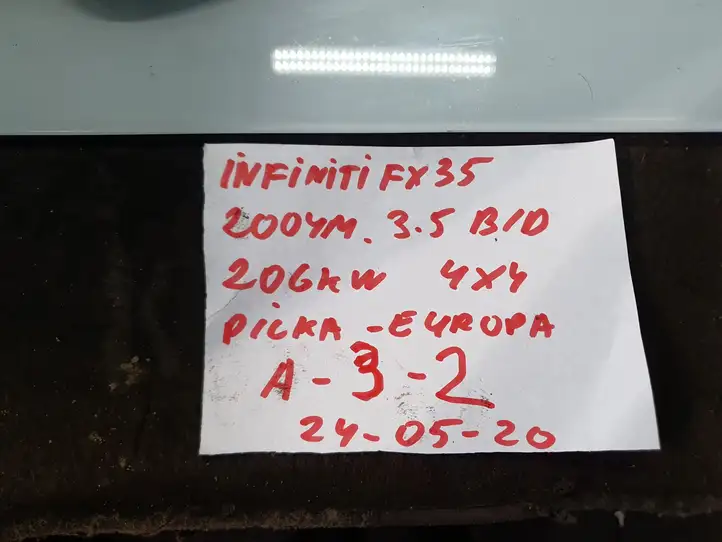 INFINITI FX35
2004M. 3.5 B/D
206kW 4X4
PILKA - EUROPA
A-3-2
24-05-20